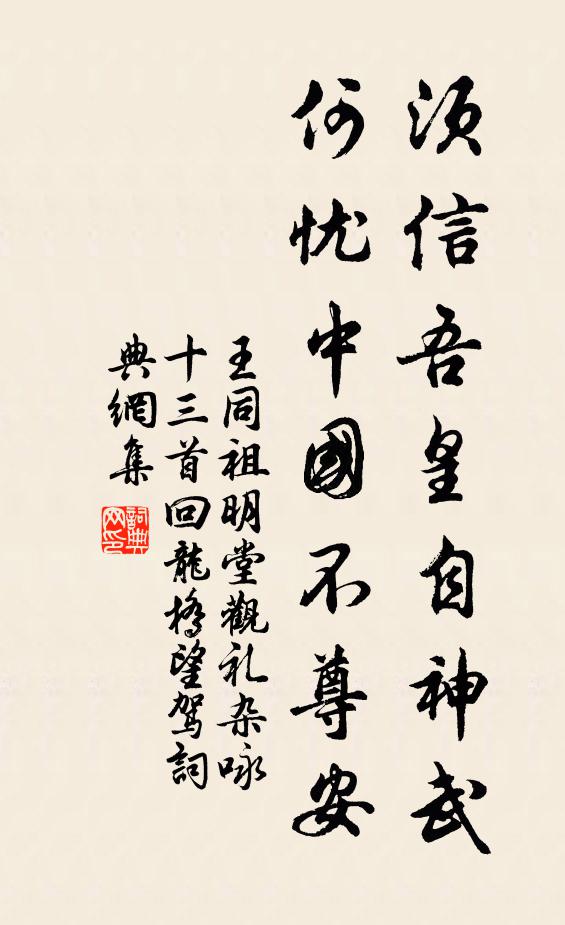 须信吾皇自神武
何忧中國不尊安
王同祖明堂觀礼杂咏
十三首回龍橋望驾詞
典網集
詞典网印